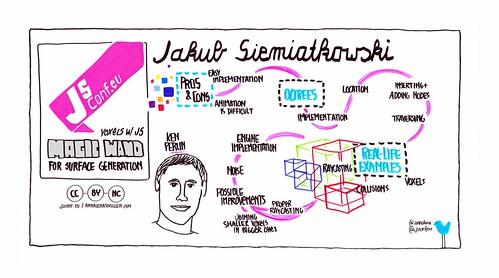 Jakub Siemiatkowski
JS
Conf.eu
VOXELS W/ JS
MAGIC WAND
FOR SURFACE GENERATION
CC BY NC
PROS
& CONS
EASY
IMPLEMENTATION
ANIMATION
IS DIFFICULT
OCTREES
IMPLEMENTATION
LOCATION
INSERTING +
ADDING NODES
TRAVERSING
REAL-LIFE
EXAMPLES
VOXELS
COLLISIONS
RAYCASTING
PROPER
RAYCASTING
ENGINE
IMPLEMENTATION
NOISE
POSSIBLE
IMPROVEMENTS
JOINING
SMALLER VOXELS
IN BIGGER ONES
KEN
PERLIN
@jsconfeu